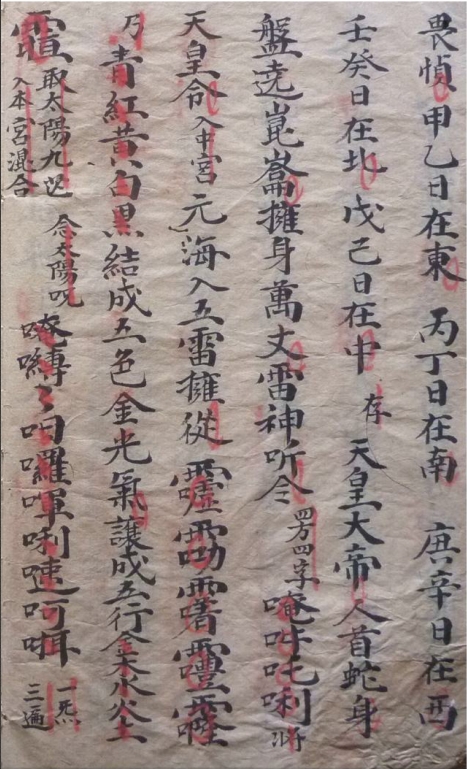 畏惧 甲乙日在東 丙丁日在南 庚辛日在西
壬癸日在北 戊己日在中 存 天皇大帝人首蛇身
盤遶崑崙擁身萬丈雷神听令 四字 唵吽吒唎
天皇令入中宮元海入五雷擁從
乃青紅黄白黑結成五色金光氣讓成五行金木水火土
取太陽九炁入本宮混合 念太陽咒 囉 唎 呵 一炁三遍